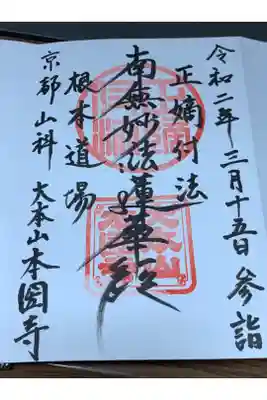 令和二年三月十五日参詣
正嫡付法
南無妙法蓮華経
根本道場
京都山科 大本山本圀寺